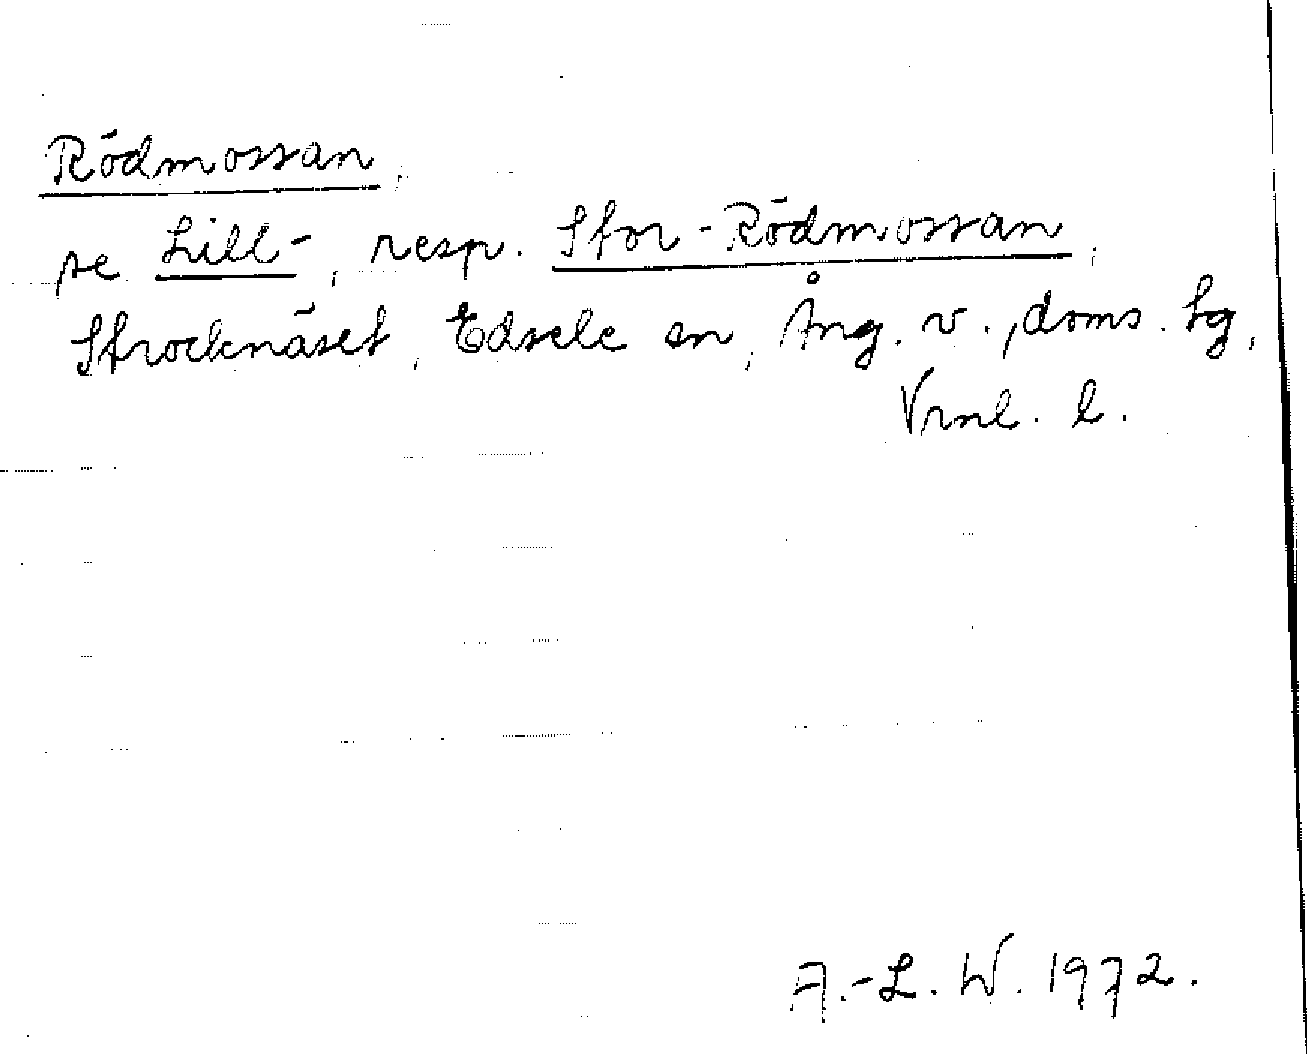 Rödmossan,
se Lill-, resp. Stor-Rödmossan,
Strocknäset, Edsele sn, Ång. v., doms. lg,
Vrnl. l.
A.-L. W. 1972.